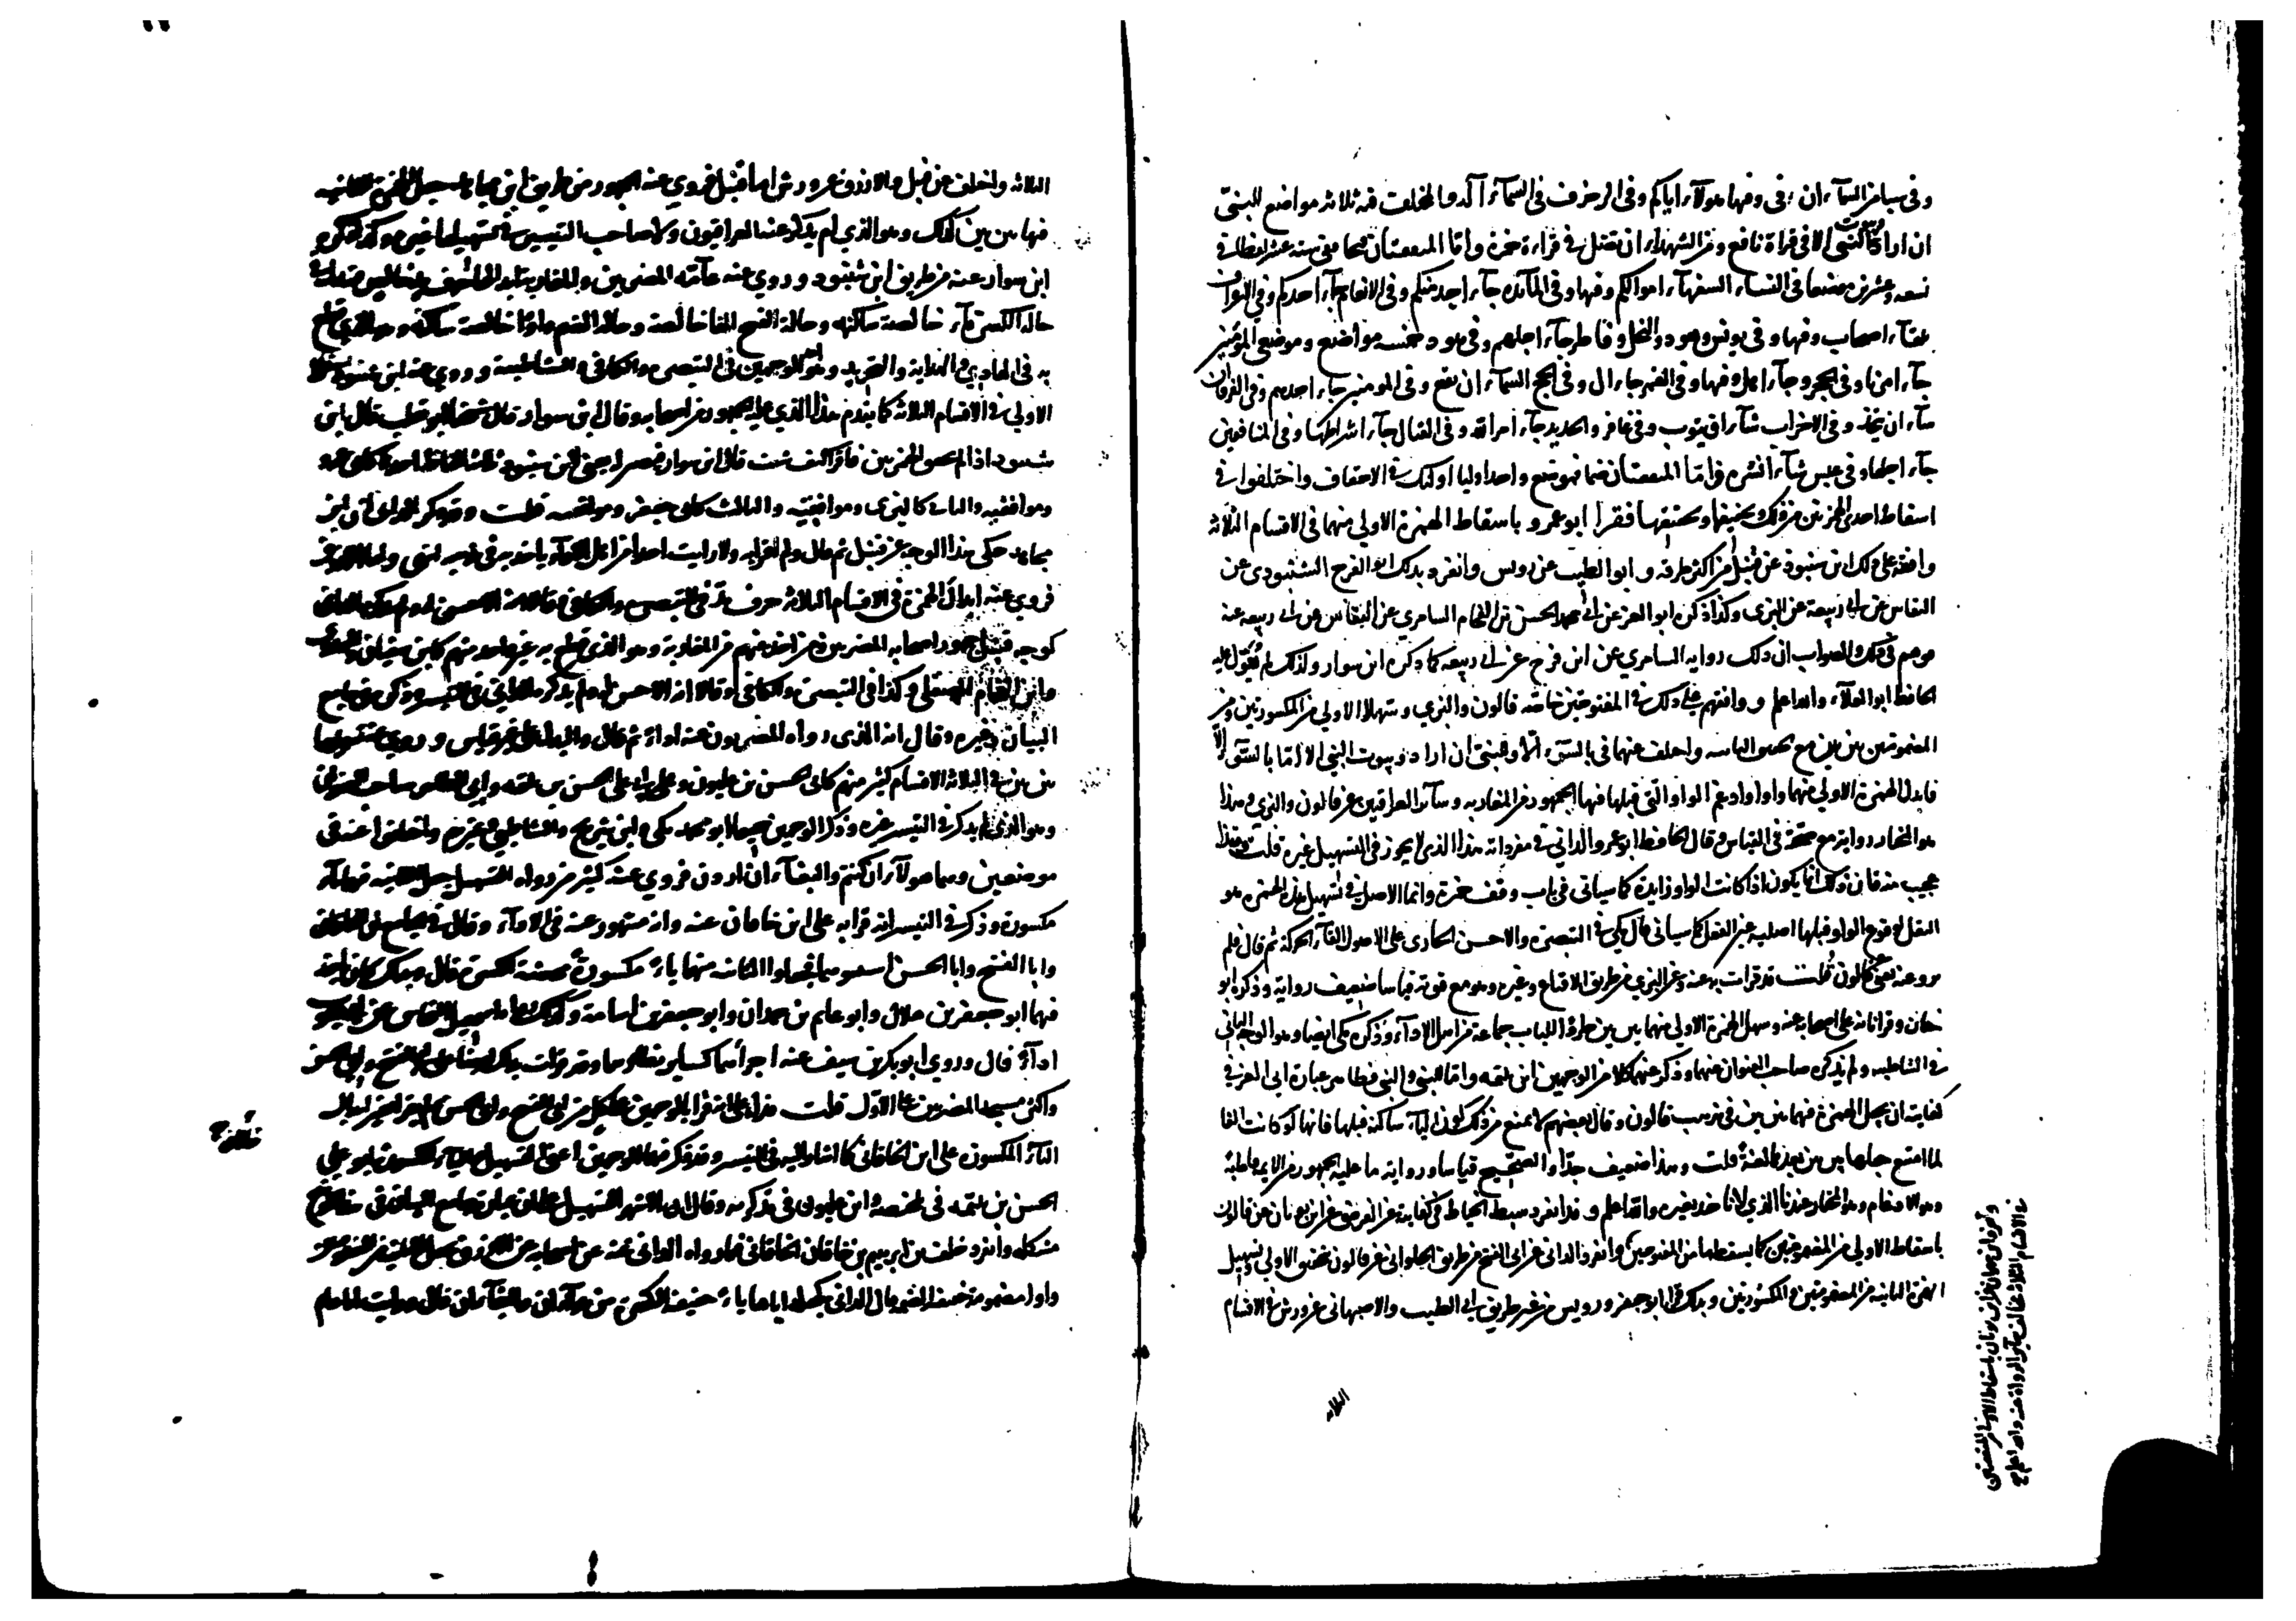 وفى سبا من السمآء ان وفى وفيها هولآء اياكم وفى الزخرف فى السمآء اله واختلفت فيه ثلاثة مواضع للنبىّ
ان اراد وبيوت النبى الا فى قراة نافع ومن الشهداء ان تضل فى قراءة حمزة وامّا المفتوحتان ففى ستة عشر لفظا فى
تسعة وعشرين موضعا فى النساء السفهآء اموالكم وفيها وفى المآئدة جآء احد منكم وفى الانعام جآء احدكم وفى الاعراف
تلقآء اصحاب وفيها وفى يونس وهود والنحل وفاطر جآء اجلهم وفى هود خمسة مواضع وموضعى المؤمنين
جآء امرنا وفى الحجر وجآء اهل وفيها وفى القمر جاء ال وفى الحج السمآء ان تقع وفى المومنين جاء احدهم وفى الفرقان
شآء ان يتخذ وفى الاحزاب شآء او يتوب وفى غافر والحديد جآء امر الله وفى القتال جآء اشراطها وفى المنافقين
جآء اجلها وفى عبس شآء انشره وامّا المضمومتان فموضع واحد اوليا اولئك فى الاحقاف واختلفوا فى
اسقاط احدى الهمزتين من ذلك وتخفيفها وتحقيقها فقرا ابو عمرو باسقاط الهمزة الاولى منهما فى الاقسام الثلاثة
وافقه على ذلك ابن شنبوذ عن قنبل من اكثر طرقه وابو الطيب عن رويس وانفرد بذلك ابو الفرج الشنبوذى عن
النقاش عن ابى ربيعة عن البزى وكذا ذكره ابو العز عن ابى محمد الحسن بن الفحام السامرى عن النقاش عن ابى ربيعة عنه
ووهم فى ذلك والصواب ان ذلك رواية السامرى عن ابن فرح عن ابى ربيعة كما ذكره ابن سوار ولذلك لم يعول عليه
الحافظ ابو العلآء والله اعلم ووافقهم على ذلك فى المفتوحتين خاصة قالون والبزى وسهلا الاولى من المكسورتين ومن
المضمومتين بين بين مع تحقيق الثانية واختلف عنهما فى بالسوء الا وللنبى ان اراد وبيوت النبى الا امّا بالسوء الا
فابدل الهمزة الاولى منهما واوا وادغم الواو التى قبلها فيها الجمهور من المغاربة وسآئر العراقيين عن قالون والبزى وهذا
هو المختار رواية مع صحته فى القياس وقال الحافظ ابو عمرو الدانى فى مفرداته هذا الذى لا يجوز فى التسهيل غيره قلت وهذا
عجيب منه فان ذلك انما يكون اذا كانت الواو زايدة كما سياتى فى باب وقف حمزة وانما الاصل فى تسهيل هذه الهمزة هو
النقل لوقوع الواو قبلها اصلية عين الفعل كما سياتى قال مكى فى التبصرة والاحسن الجارى على الاصول القآء الحركة ثم قال ولم
يرو عنه يعنى عن قالون قلت قد قرات به عنه وعن البزى من طريق الاقناع وغيره وهو مع قوته قياسا ضعيف رواية وذكره ابو
حيان وقرانا به على اصحابه عنه وسهل الهمزة الاولى منهما بين بين طردا للباب جماعة من اهل الادآء وذكره مكى ايضا وهو الوجه الثانى
فى الشاطبيه ولم يذكره صاحب العنوان عنهما وذكر عنهما كلا من الوجهين ابن بليمة وامّا للنبى والنبى فظاهر عبارة ابى العز فى
كفايته ان يجعل الهمزة فيهما بين بين فى مذهب قالون وقال بعضهم لا يمنع من ذلك كون اليآء ساكنة قبلها فانها لو كانت الفا
لما امتنع جعلها بين بين بعدها لغة قلت وهذا ضعيف جدّا والصحيح قياسا ورواية ما عليه الجمهور من الايمة قاطبة
وهو الادغام وهو المختار عندنا الذى لا ناخذ بغيره والله اعلم وقد انفرد سبط الخياط فى كفايته عن الفرضى عن ابن بويان عن قالون
باسقاط الاولى من المضمومتين كما يسقطها من المفتوحتين وانفرد الدانى عن ابى الفتح من طريق الحلوانى عن قالون بتحقيق الاولى وتسهيل
الهمزة الثانية من المضمومتين والمكسورتين وبذلك قرا ابو جعفر ورويس من غير طريق ابى الطيب والاصبهانى عن ورش فى الاقسام
الثلاثة
الثلاثة واختلف عن قنبل والازرق عن ورش اما قنبل فروى عنه الجمهور من طريق ابن مجاهد جعل الهمزة الثانية
فيها بين بين كذلك وهو الذى لم يذكر عنه العراقيون ولا صاحب التيسير فى تسهيلها غيره وكذا ذكره
ابن سوار عنه من طريق ابن شنبوذ وروى عنه عامّة المصريين والمغاربة ابدالها حرف مد خالص فتبدل فى
حالة الكسر يآء خالصة ساكنة وحالة الفتح الفا خالصة وحالة الضم واوا خالصة ساكنة وهو الذى قطع
به فى الهادى والهداية والتجريد وهو احد الوجهين فى التبصرة والكافى والشاطبية وروى عنه ابن شنبوذ اسقاط
الاولى فى الاقسام الثلاثة كما تقدم هذا الذى عليه الجمهور من اصحابه وقال ابن سوار قال شيخنا ابو تغلب قال ابن
شنبوذ اذا لم تحقق الهمزتين فاقرا كيف شئت قال ابن سوار فيصير له يعنى لابن شنبوذ ثلاثة الفاظ احدها كابى عمرو
وموافقيه والثانى كالبزى وموافقيه والثالث كابى جعفر وموافقيه قلت وقد ذكر الدانى ان ابن
مجاهد حكى هذا الوجه عن قنبل ثم قال ولم اقرا به ولا رايت احدا من اهل الادآء ياخذ به فى مذهبه انتهى واما الازرق
فروى عنه ابدال الهمزة فى الاقسام الثلاثة حرف مد
كوجه قنبل جمهور اصحابه المصريين ومن اخذ عنهم من المغاربة وهو الذى قطع به غير واحد منهم كابن سفيان والمهدوى
وابن الفحام الصقلى وكذا فى التبصرة والكافى وقالا انه الاحسن له ولم يذكره الدانى فى التيسير وذكره فى جامع
البيان وغيره وقال انه الذى رواه المصريون عنه ادآء ثم قال والبدل على غير قياس وروى عنه تسهيلها
بين بين فى الثلاثة الاقسام كثير منهم كابى الحسن بن غلبون وابى على الحسن بن بليمة وابى الطاهر صاحب العنوان
وهو الذى لم يذكر فى التيسير غيره وذكر الوجهين جميعا ابو محمد مكى وابن شريح والشاطبى وغيرهم واختلفوا عنه فى
موضعين وهما هولآء ان كنتم والبغآء ان اردن فروى عنه كثير من رواة التسهيل جعل الثانية فيهما يآء
مكسورة وذكر فى التيسير انه قرا به على ابن خاقان عنه وانه مشهور عنه فى الادآء وقال فى الجامع ان الخاقانى
وابا الفتح وابا الحسن استثنوهما فجعلوا الثانية منهما يآء مكسورة محضة الكسرة قال وبذلك كان ياخذ
فيهما ابو جعفر بن هلال وابو غانم بن حمدان وابو جعفر بن اسامة وكذلك رواه اسمعيل النحاس عن ابى يعقوب
ادآء قال وروى ابو بكر بن سيف عنه اجرآهما كساير نظايرهما وقد قرات بذلك ايضا على ابى الفتح وابى الحسن
واكثر مشيخة المصريين على الاول قلت فدل على انه قرا بالوجهين على كل من ابى الفتح وابى الحسن ولم يقرا بغير ابدال
اليآء المكسورة على ابن الخاقانى كما اشار اليه فى التيسير وقد ذكر فيهما الوجهين اعنى التسهيل واليآء المكسورة ابو على
الحسن بن بليمة فى تلخيصه وابن غلبون فى تذكرته وقال ان الاشهر التسهيل على ان عبارة جامع البيان فى هذا الموضع
مشكلة وانفرد خلف بن ابرهيم بن خاقان الخاقانى فيما رواه الدانى عنه عن اصحابه عن الازرق بجعل الثانية من المضمومتين
واوا مضمومة خفيفة الضم قال الدانى كجعله اياها يآء خفيفة الكسرة من هولآء ان والبغآء ان قال ورايت ابا غانم